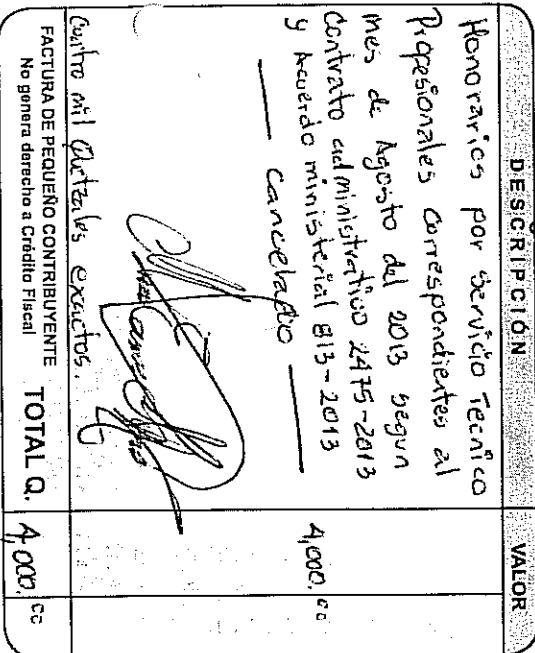 DESCRIPCIÓN VALOR
Honorarios por Servicio Tecnico
Profesionales Correspondientes al
mes de Agosto del 2013 segun
Contrato administrativo 2475-2013
y Acuerdo ministerial 813-2013 4,000.00
— Cancelado —
Cuatro mil Quetzales exactos.
FACTURA DE PEQUEÑO CONTRIBUYENTE
No genera derecho a Crédito Fiscal
TOTAL Q. 4,000.00